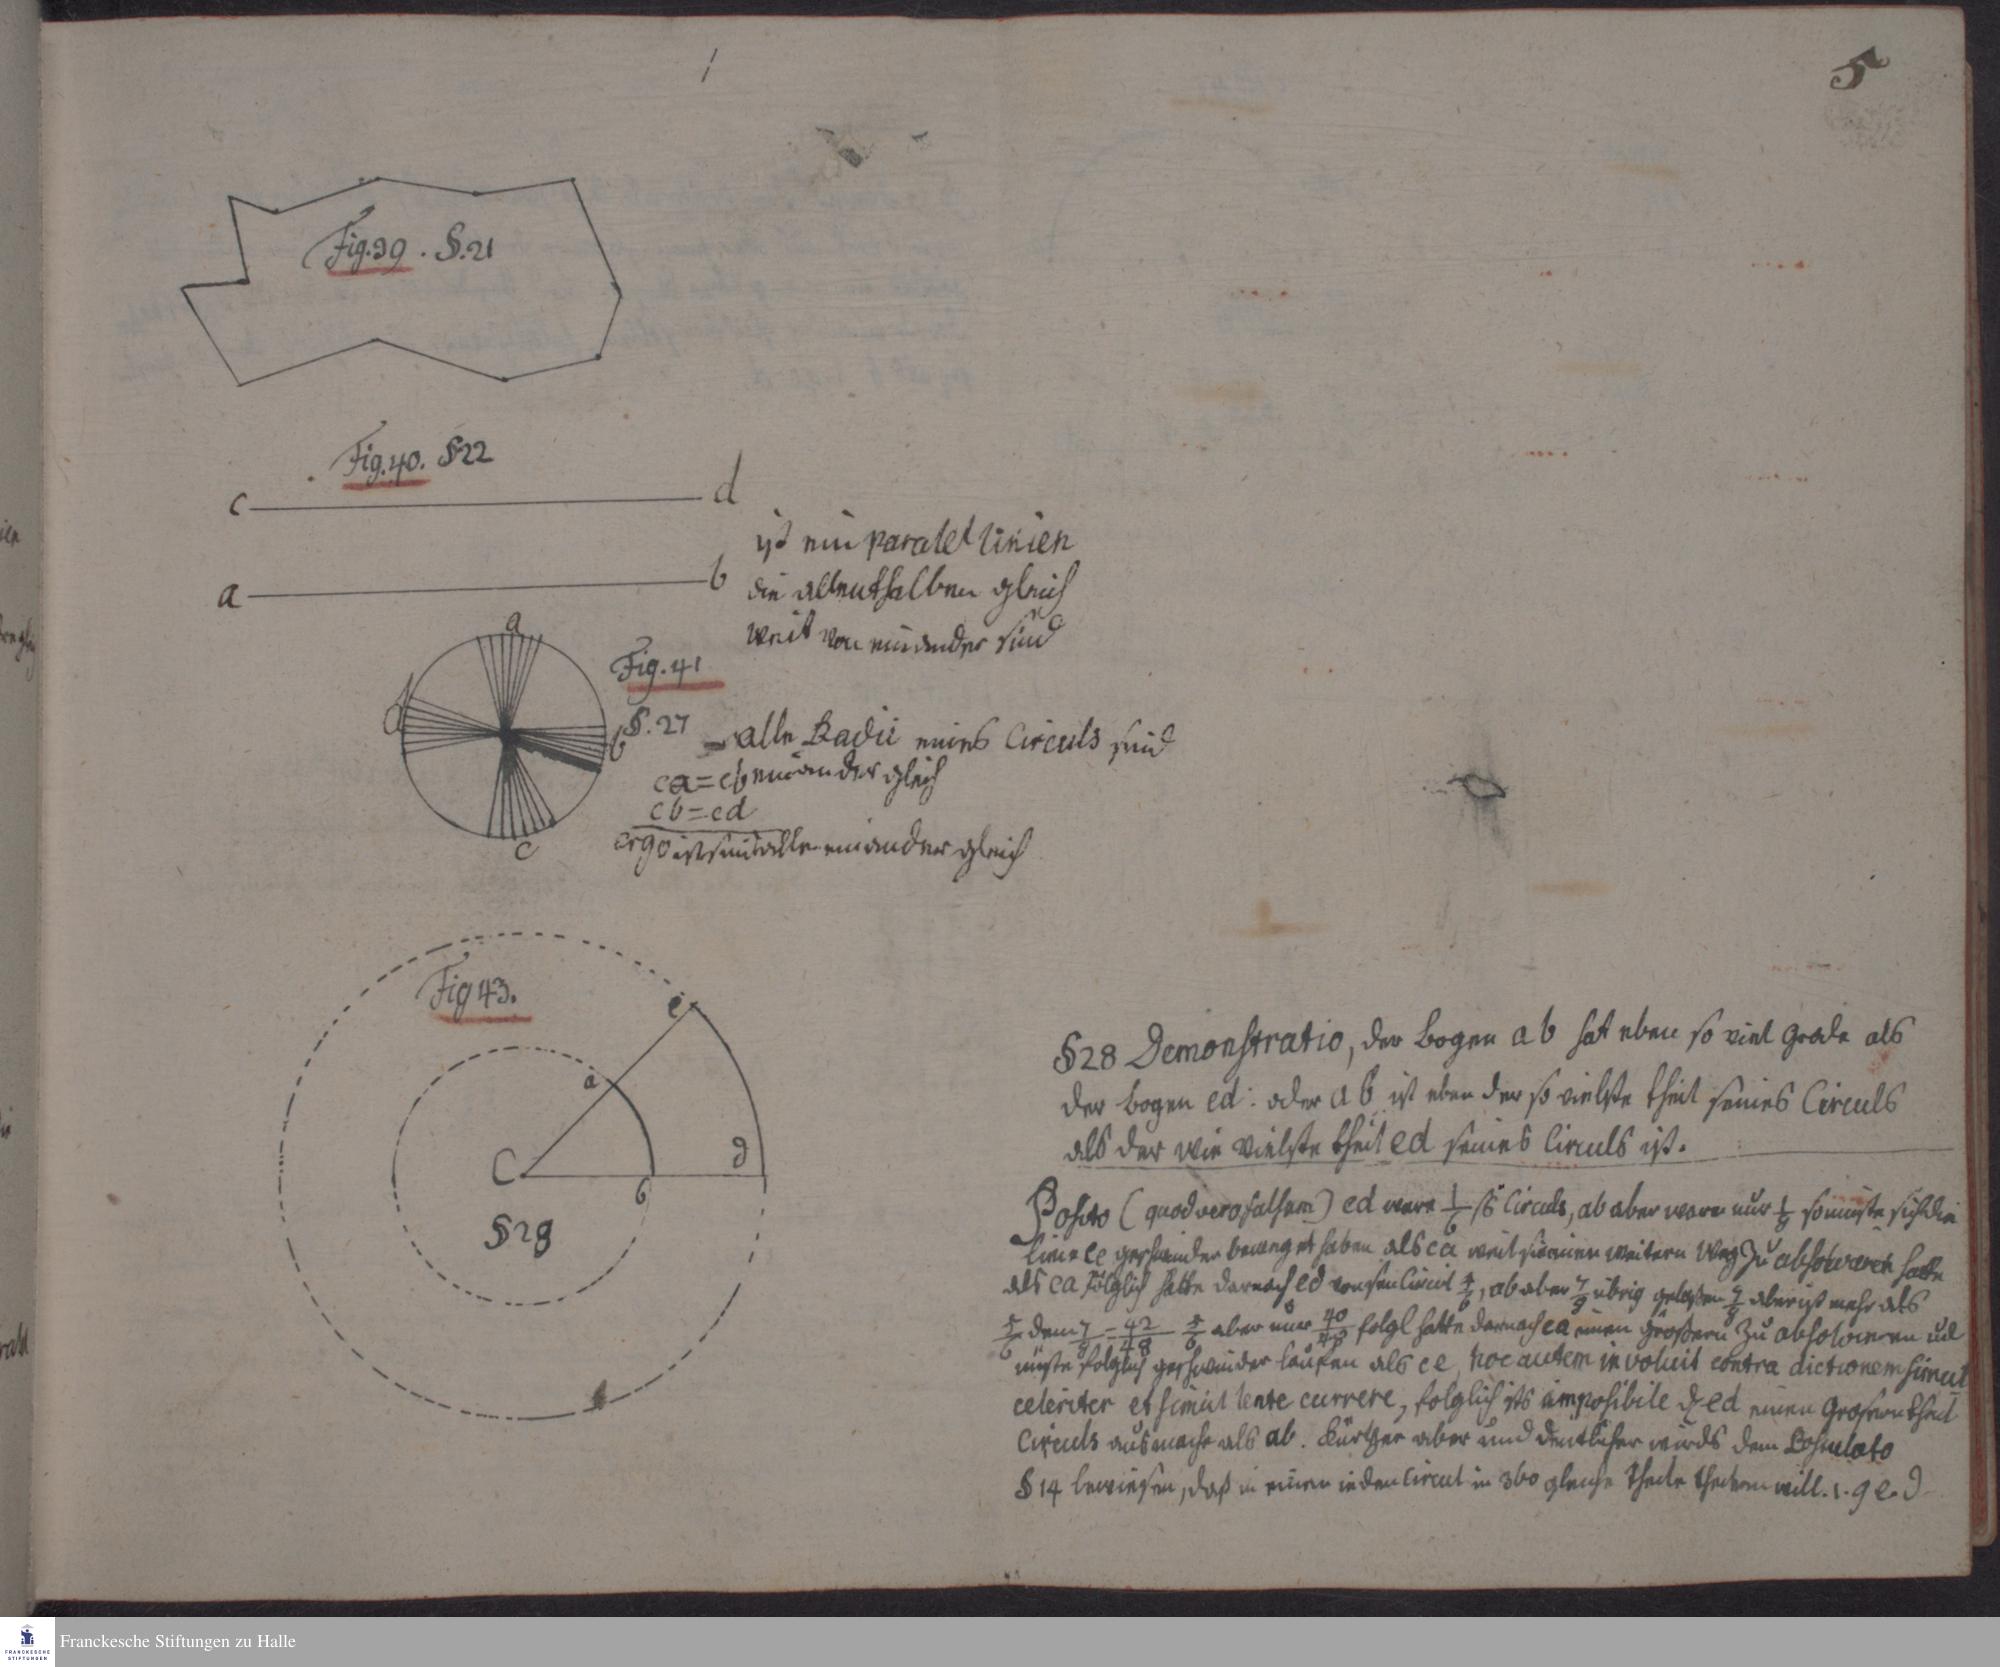 1
5
Fig. 39. §. 21
Fig. 40. §22
c d
a b
ist ein paralel linien
die allenthalben gleich
weit von einander sind
a
d
b
c
Fig. 41
§. 27
alle Radii eines Circuls sind
ca=cb einander gleich
cb=cd
ergo sind alle einander gleich
Fig 43.
e
a
d
C
b
§28
§28 Demonstratio, der bogen ab hat eben so viel grade als
der bogen ed: oder ab ist eben der so vielste theil seines Circuls
als der wie vielste theil ed seines Circuls ist.
Posito (quod vero falsum) ed were 1/6 Circuls, ab aber were nur 1/8 so müste sich die
linie ce geschwinder beweget haben als ca weil sie einen weitern Weg zu absolviren hatte
als ca folglich hätte darnach ed von sen Circul 5/6, ab aber 7/8 übrig gelaßen 7/8 aber ist mehr als
5/6 denn 7/8 = 42/48 5/6 aber nur 40/48 folgl hatte darnach ca einen größern zu absolviren und
müste folglich geschwinder lauffen als ce, hoc autem involvit contradictionem simul
celeriter et simul lente currere, folglich ists impossibile ed einen größern theil
Circuls ausmache als ab. Kürtzer aber und deutlicher wirds dem Postulato
§14 bewiesen, daß in einen jeden Circul in 360 gleiche theile theilen will. q e. d
Franckesche Stiftungen zu Halle
FRANCKESCHE
STIFTUNGEN